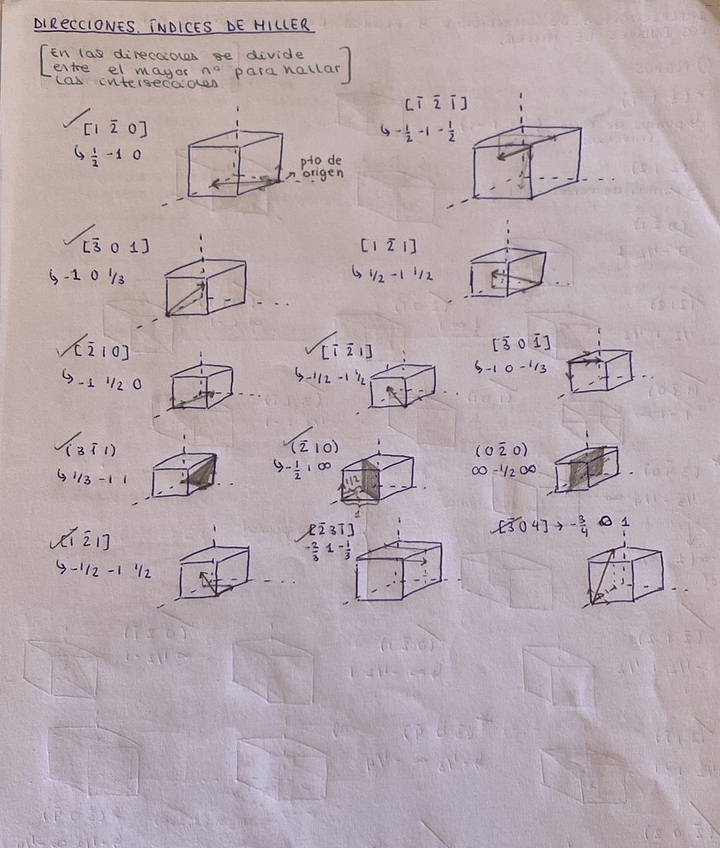 DIRECCIONES. ÍNDICES DE MILLER
[En las direcciones se divide
entre el mayor nº para hallar
las intersecciones]
✓ [1 2̄ 0]
↳ 1/2 -1 0
pto de
origen
[1̄ 2̄ 1̄]
↳ -1/2 -1 -1/2
✓ [3̄ 0 1]
↳ -1 0 1/3
[1 2̄ 1]
↳ 1/2 -1 1/2
✓ [2̄ 1 0]
↳ -1 1/2 0
✓ [1̄ 2̄ 1]
↳ -1/2 -1 1/2
[3̄ 0 1̄]
↳ -1 0 -1/3
✓ (3 1̄ 1)
↳ 1/3 -1 1
✓ (2̄ 1 0)
↳ -1/2 1 ∞
1/2
1
(0 2̄ 0)
∞ -1/2 ∞
✓ [1̄ 2̄ 1]
↳ -1/2 -1 1/2
✓ [2̄ 3 1̄]
-2/3 1 -1/3
✓ [3̄ 0 4] → -3/4 0 1